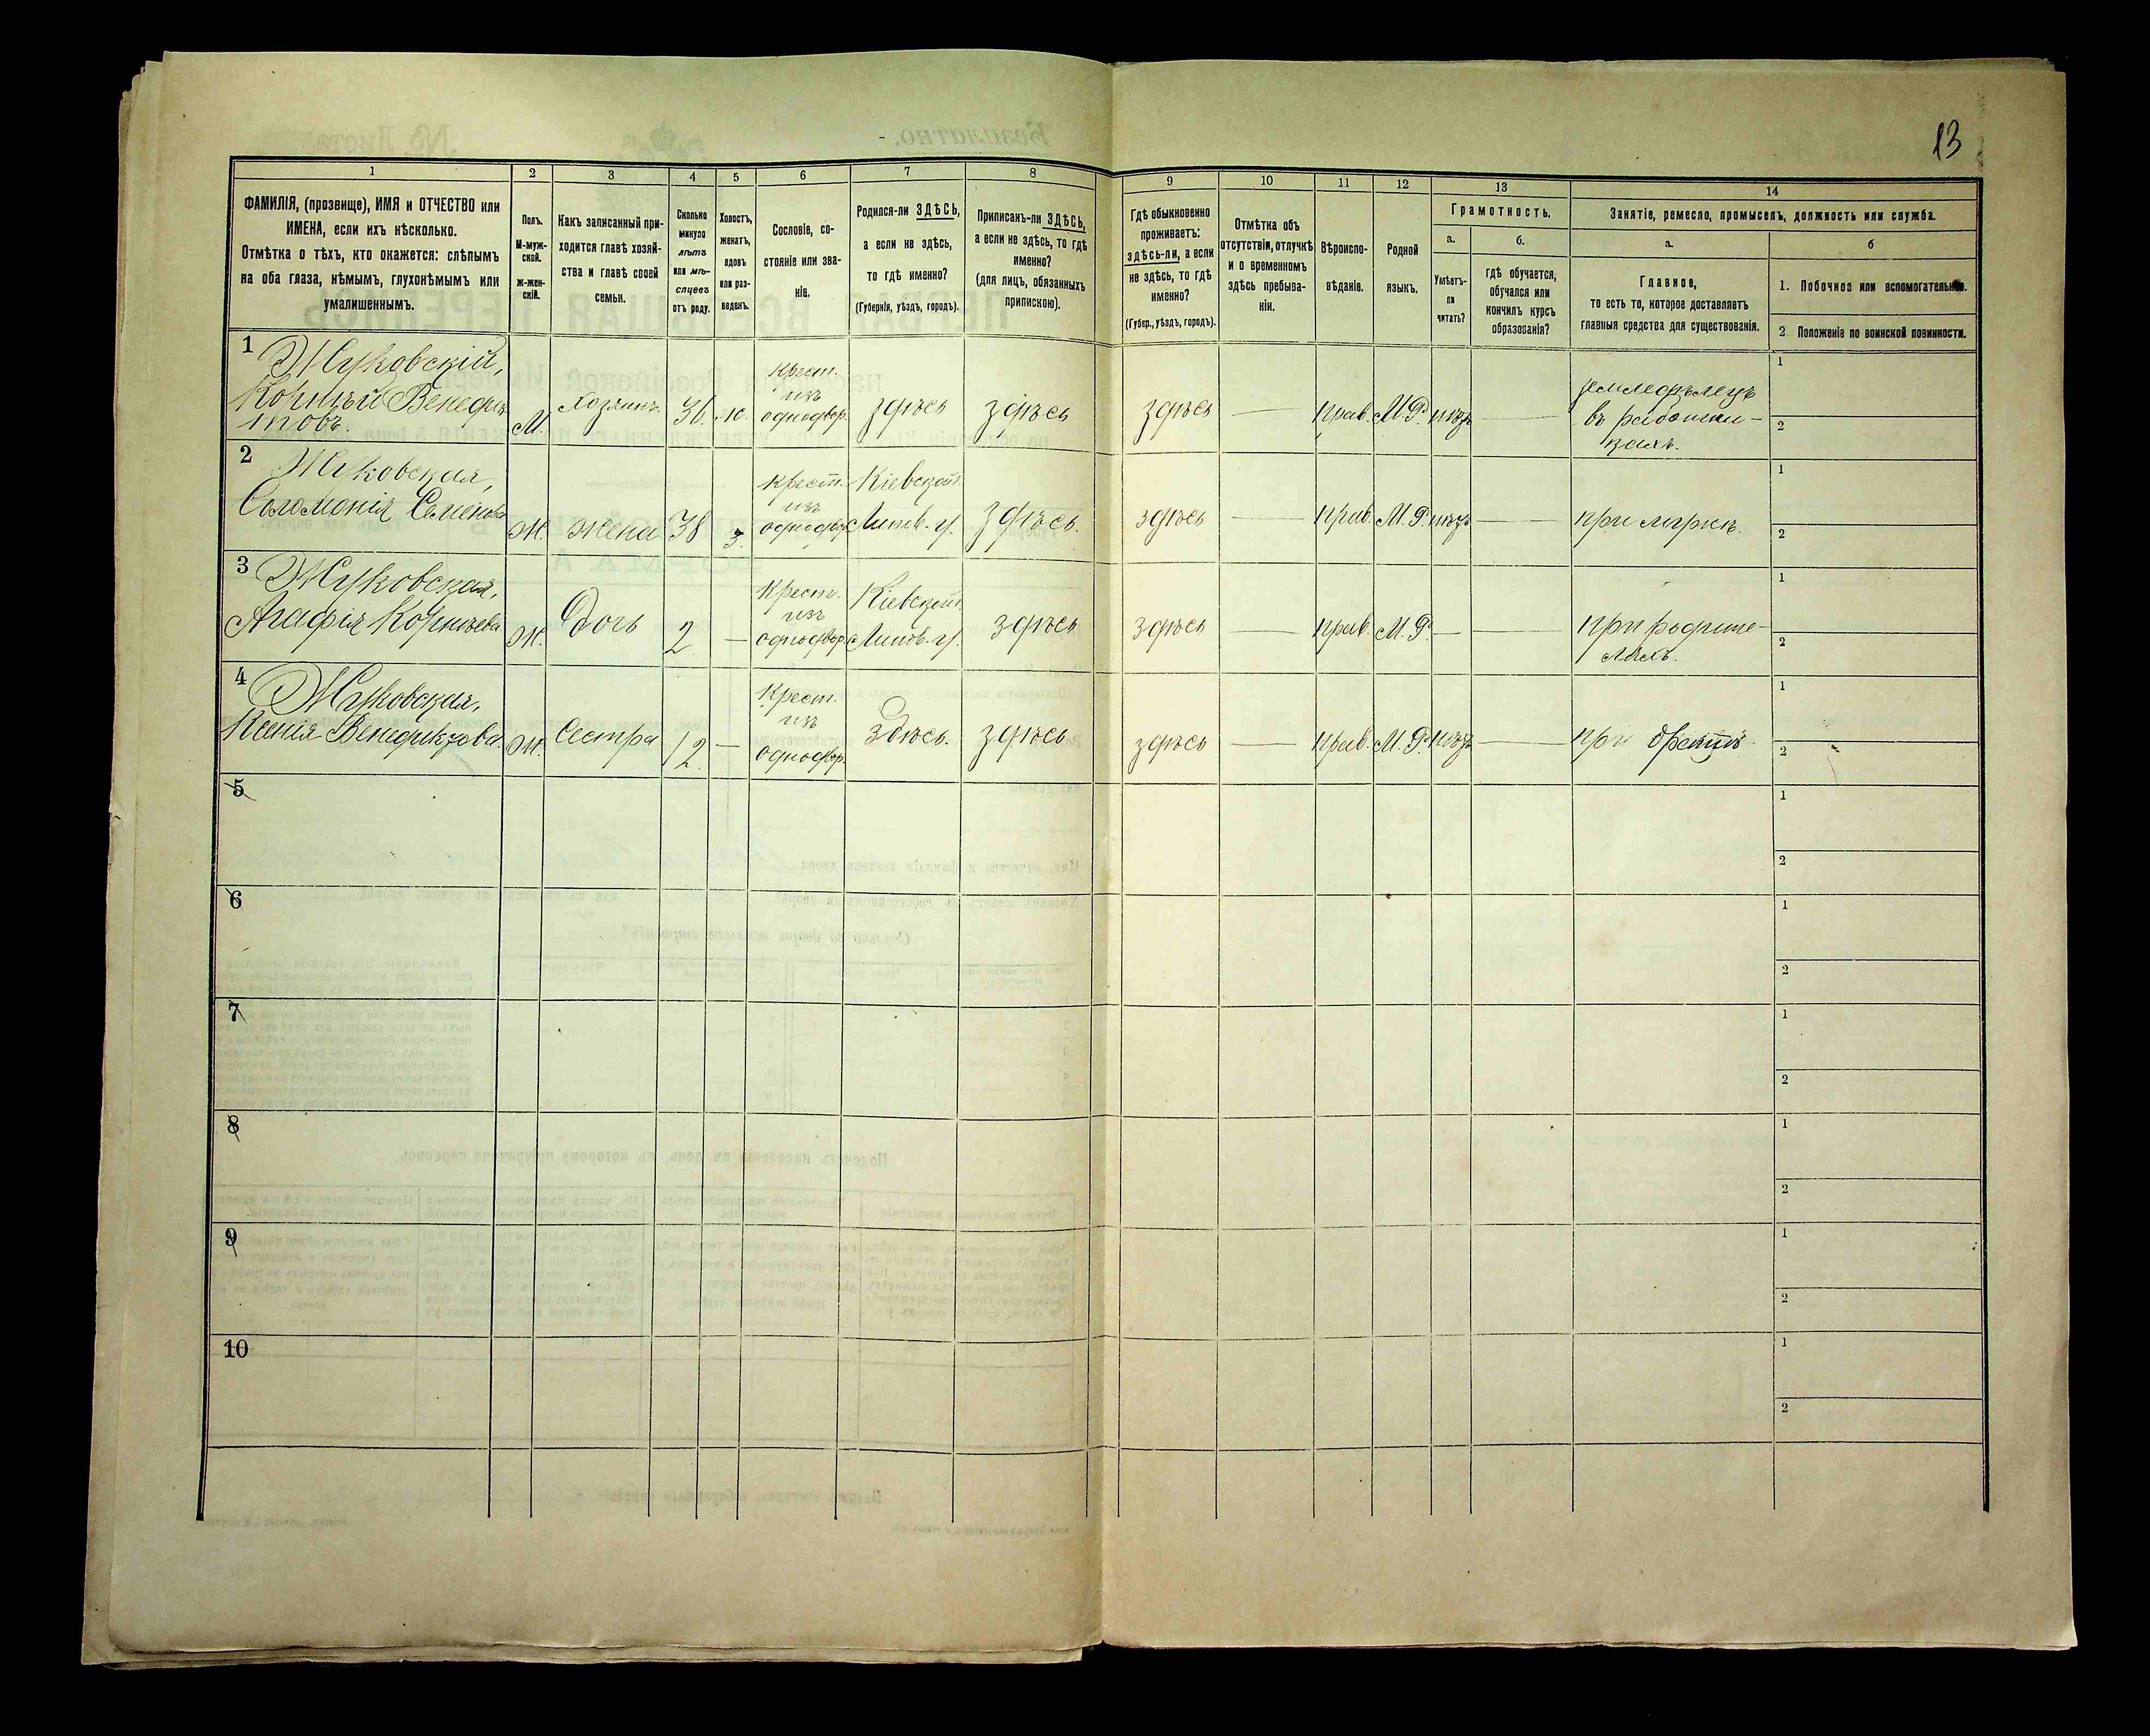 13
1
2
3
4
5
6
7
8
9
10
11
12
13
14
ФАМИЛІЯ, (прозвище), ИМЯ и ОТЧЕСТВО или
ИМЕНА, если ихъ нѣсколько.
Отмѣтка о тѣхъ, кто окажется: слѣпымъ
на оба глаза, нѣмымъ, глухонѣмымъ или
умалишеннымъ.
Полъ.
М-муж-
ской.
Ж-жен-
скій.
Какъ записанный при-
ходится главѣ хозяй-
ства и главѣ своей
семьи.
Сколько
минуло
лѣтъ
или мѣ-
сяцевъ
отъ роду.
Холостъ,
женатъ,
вдовъ
или раз-
веденъ.
Сословіе, со-
стояніе или зва-
ніе.
Родился-ли ЗДѢСЬ,
а если не здѣсь,
то гдѣ именно?
(Губернія, уѣздъ, городъ).
Приписанъ-ли ЗДѢСЬ,
а если не здѣсь, то гдѣ
именно?
(для лицъ, обязанныхъ
припискою).
Гдѣ обыкновенно
проживаетъ:
здѣсь-ли, а если
не здѣсь, то гдѣ
именно?
(Губер., уѣздъ, городъ).
Отмѣтка объ
отсутствіи, отлучкѣ
и о временномъ
здѣсь пребыва-
ніи.
Вѣроиспо-
вѣданіе.
Родной
языкъ.
Грамотность.
а.
Умѣетъ-
ли
читать?
б.
гдѣ обучается,
обучался или
кончилъ курсъ
образованія?
Занятіе, ремесло, промыселъ, должность или служба.
а.
Главное,
то есть то, которое доставляетъ
главныя средства для существованія.
б
1. Побочное или вспомогательное.
2. Положеніе по воинской повинности.
1
Жуковскій,
Корнѣй Венедик
товъ.
М.
Хозяинъ.
36.
ж.
крест.
изъ
однодвор.
здѣсь
здѣсь
здѣсь
—
прав.
М.Р.
нѣтъ
—
земледѣлецъ
въ работни-
кахъ.
1
2
2
Жуковская,
Соломонія Семенова
Ж.
жена
38
з.
крест.
изъ
однодвор.
Кіевской г.
Липов. у.
здѣсь.
здѣсь
—
прав.
М.Р.
нѣтъ
—
при мужѣ.
1
2
3
Жуковская,
Агафія Корнѣева
Ж.
Дочь
2
—
Крест.
изъ
однодвор.
Кіевской г.
Липов. у.
здѣсь
здѣсь
—
прав.
М.Р.
—
—
при родите-
ляхъ.
1
2
4
Жуковская,
Ксенія Венедиктова.
Ж.
Сестра
12.
—
Крест.
изъ
однодвор.
Здѣсь.
здѣсь
здѣсь
—
прав.
М.Р.
нѣтъ
—
при братѣ
1
2
5
1
2
6
1
2
7
1
2
8
1
2
9
1
2
10
1
2